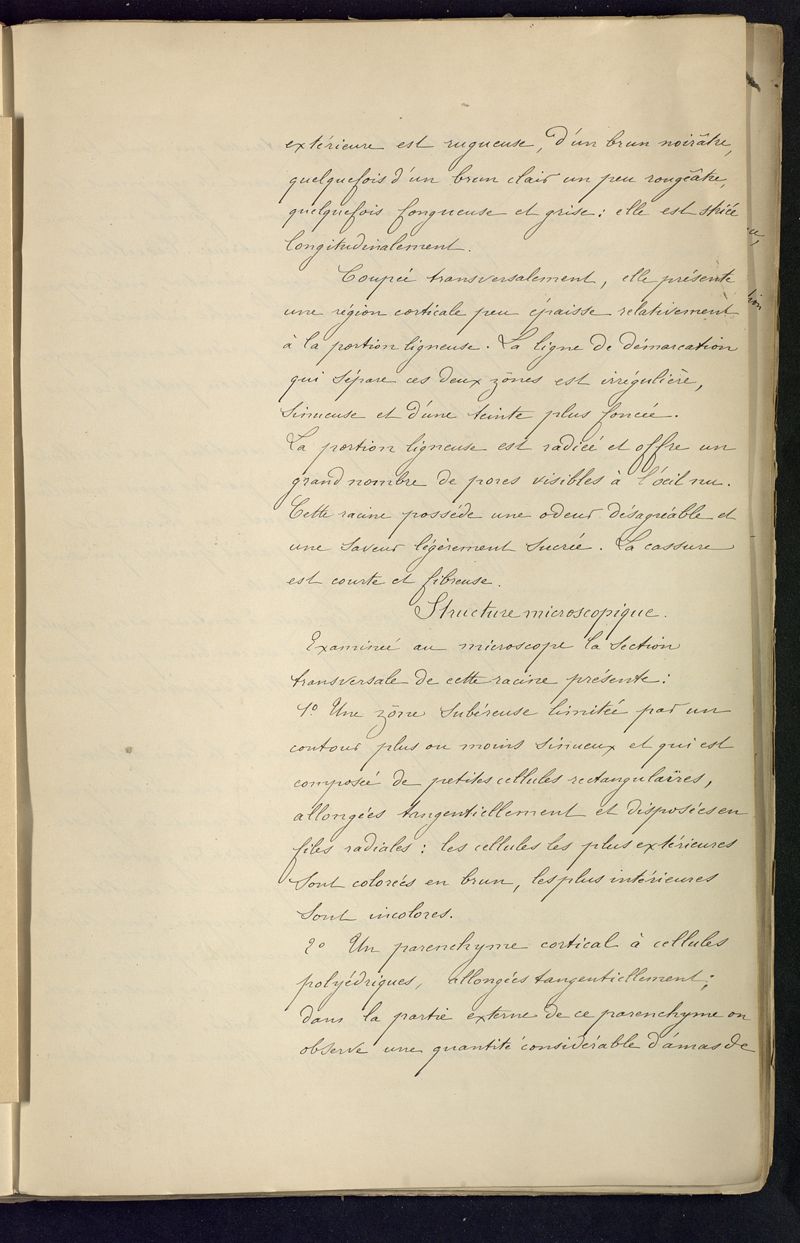 extérieure est rugueuse, d'un brun noirâtre,
quelquefois d'un brun clair un peu rougeâtre,
quelquefois fongueuse et grise : elle est striée
longitudinalement.
Coupée transversalement, elle présente
une région corticale peu épaisse relativement
à la portion ligneuse. La ligne de démarcation
qui sépare ces deux zônes est irrégulière,
sinueuse et d'une teinte plus foncée.
La portion ligneuse est radiée et offre un
grand nombre de pores visibles à l'oeil nu.
Cette racine possède une odeur désagréable et
une saveur légèrement sucrée. La cassure
est courte et fibreuse.
Structure microscopique.
Examinée au microscope la section
transversale de cette racine présente :
1º Une zône subéreuse limitée par un
contour plus ou moins sinueux et qui est
composée de petites cellules rectangulaires,
allongées tangentiellement et disposées en
files radiales : les cellules les plus extérieures
sont colorées en brun, les plus intérieures
sont incolores.
2º Un parenchyme cortical à cellules
polyédriques, allongées tangentiellement ;
dans la partie externe de ce parenchyme on
observe une quantité considérable d'amas de